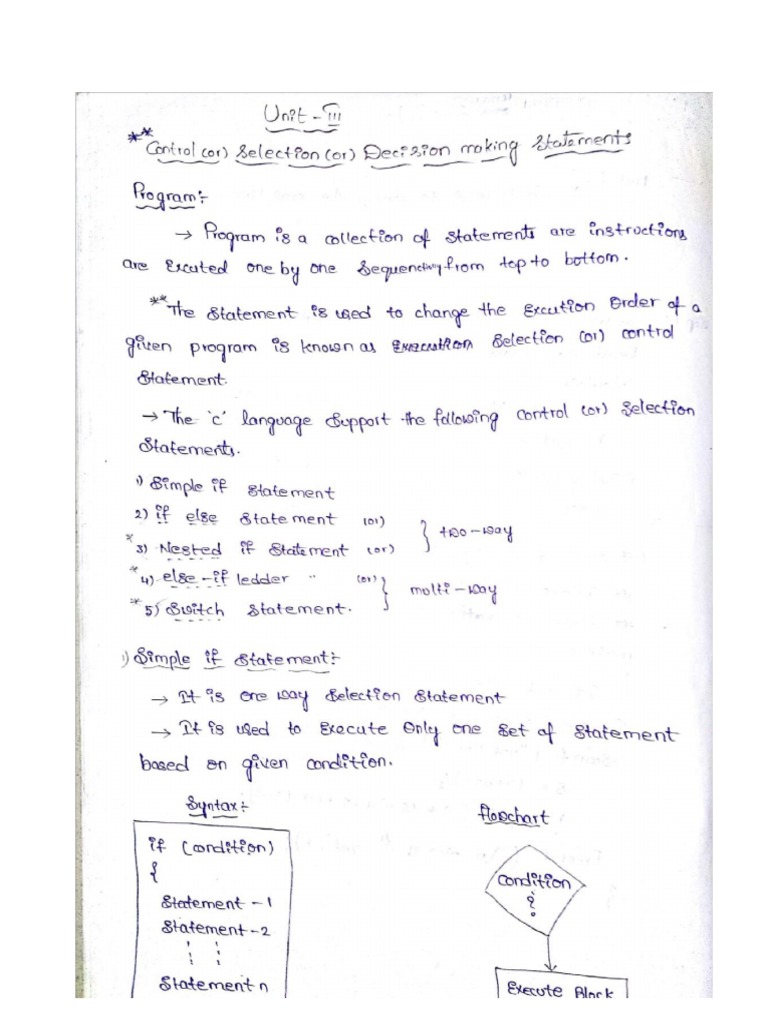 Unit - III
** Control (or) Selection (or) Decision making Statements
Program :-
→ Program is a collection of statements are instructions
are Excuted one by one Sequentially from top to bottom.
** The Statement is used to change the Excution Order of a
given program is known as Selection (or) control
Statement.
→ The 'c' language Support the following control (or) Selection
Statements.
1) Simple if Statement
2) if else Statement (or)
* 3) Nested if Statement (or) } two-way
* 4) else-if ledder " (or)
* 5) Switch Statement. } molti-way
1) Simple if Statement :-
→ It is one way Selection Statement
→ It is used to Execute Only one Set of Statement
based on given condition.
Syntax :-
if (condition)
{
Statement - 1
Statement - 2
Statement n
flowchart
condition
?
Execute Block